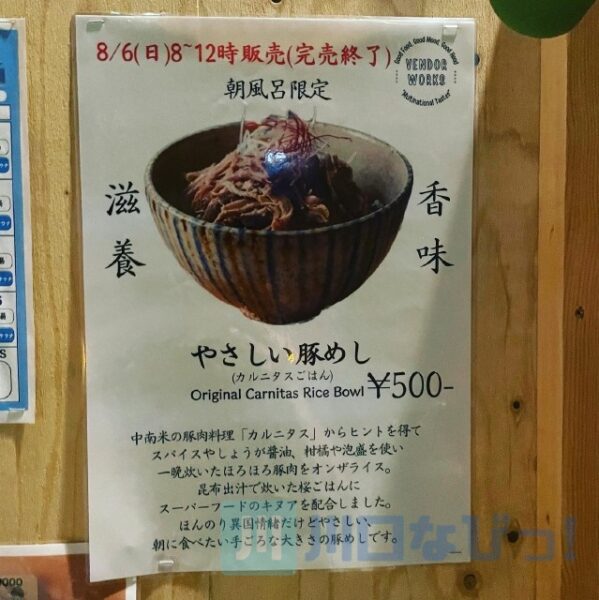 8/6(日)8~12時販売(完売終了)
Good Food, Good Mood, Good Mood
VENDOR
WORKS
"Multinational Tastes"
朝風呂限定
滋養
香味
やさしい豚めし
(カルニタスごはん)
Original Carnitas Rice Bowl ¥500-
中南米の豚肉料理「カルニタス」からヒントを得て
スパイスやしょうが醤油、柑橘や泡盛を使い
一晩炊いたほろほろ豚肉をオンザライス。
昆布出汁で炊いた桜ごはんに
スーパーフードのキヌアを配合しました。
ほんのり異国情緒だけどやさしい、
朝に食べたい手ごろな大きさの豚めしです。
川口なびっ!